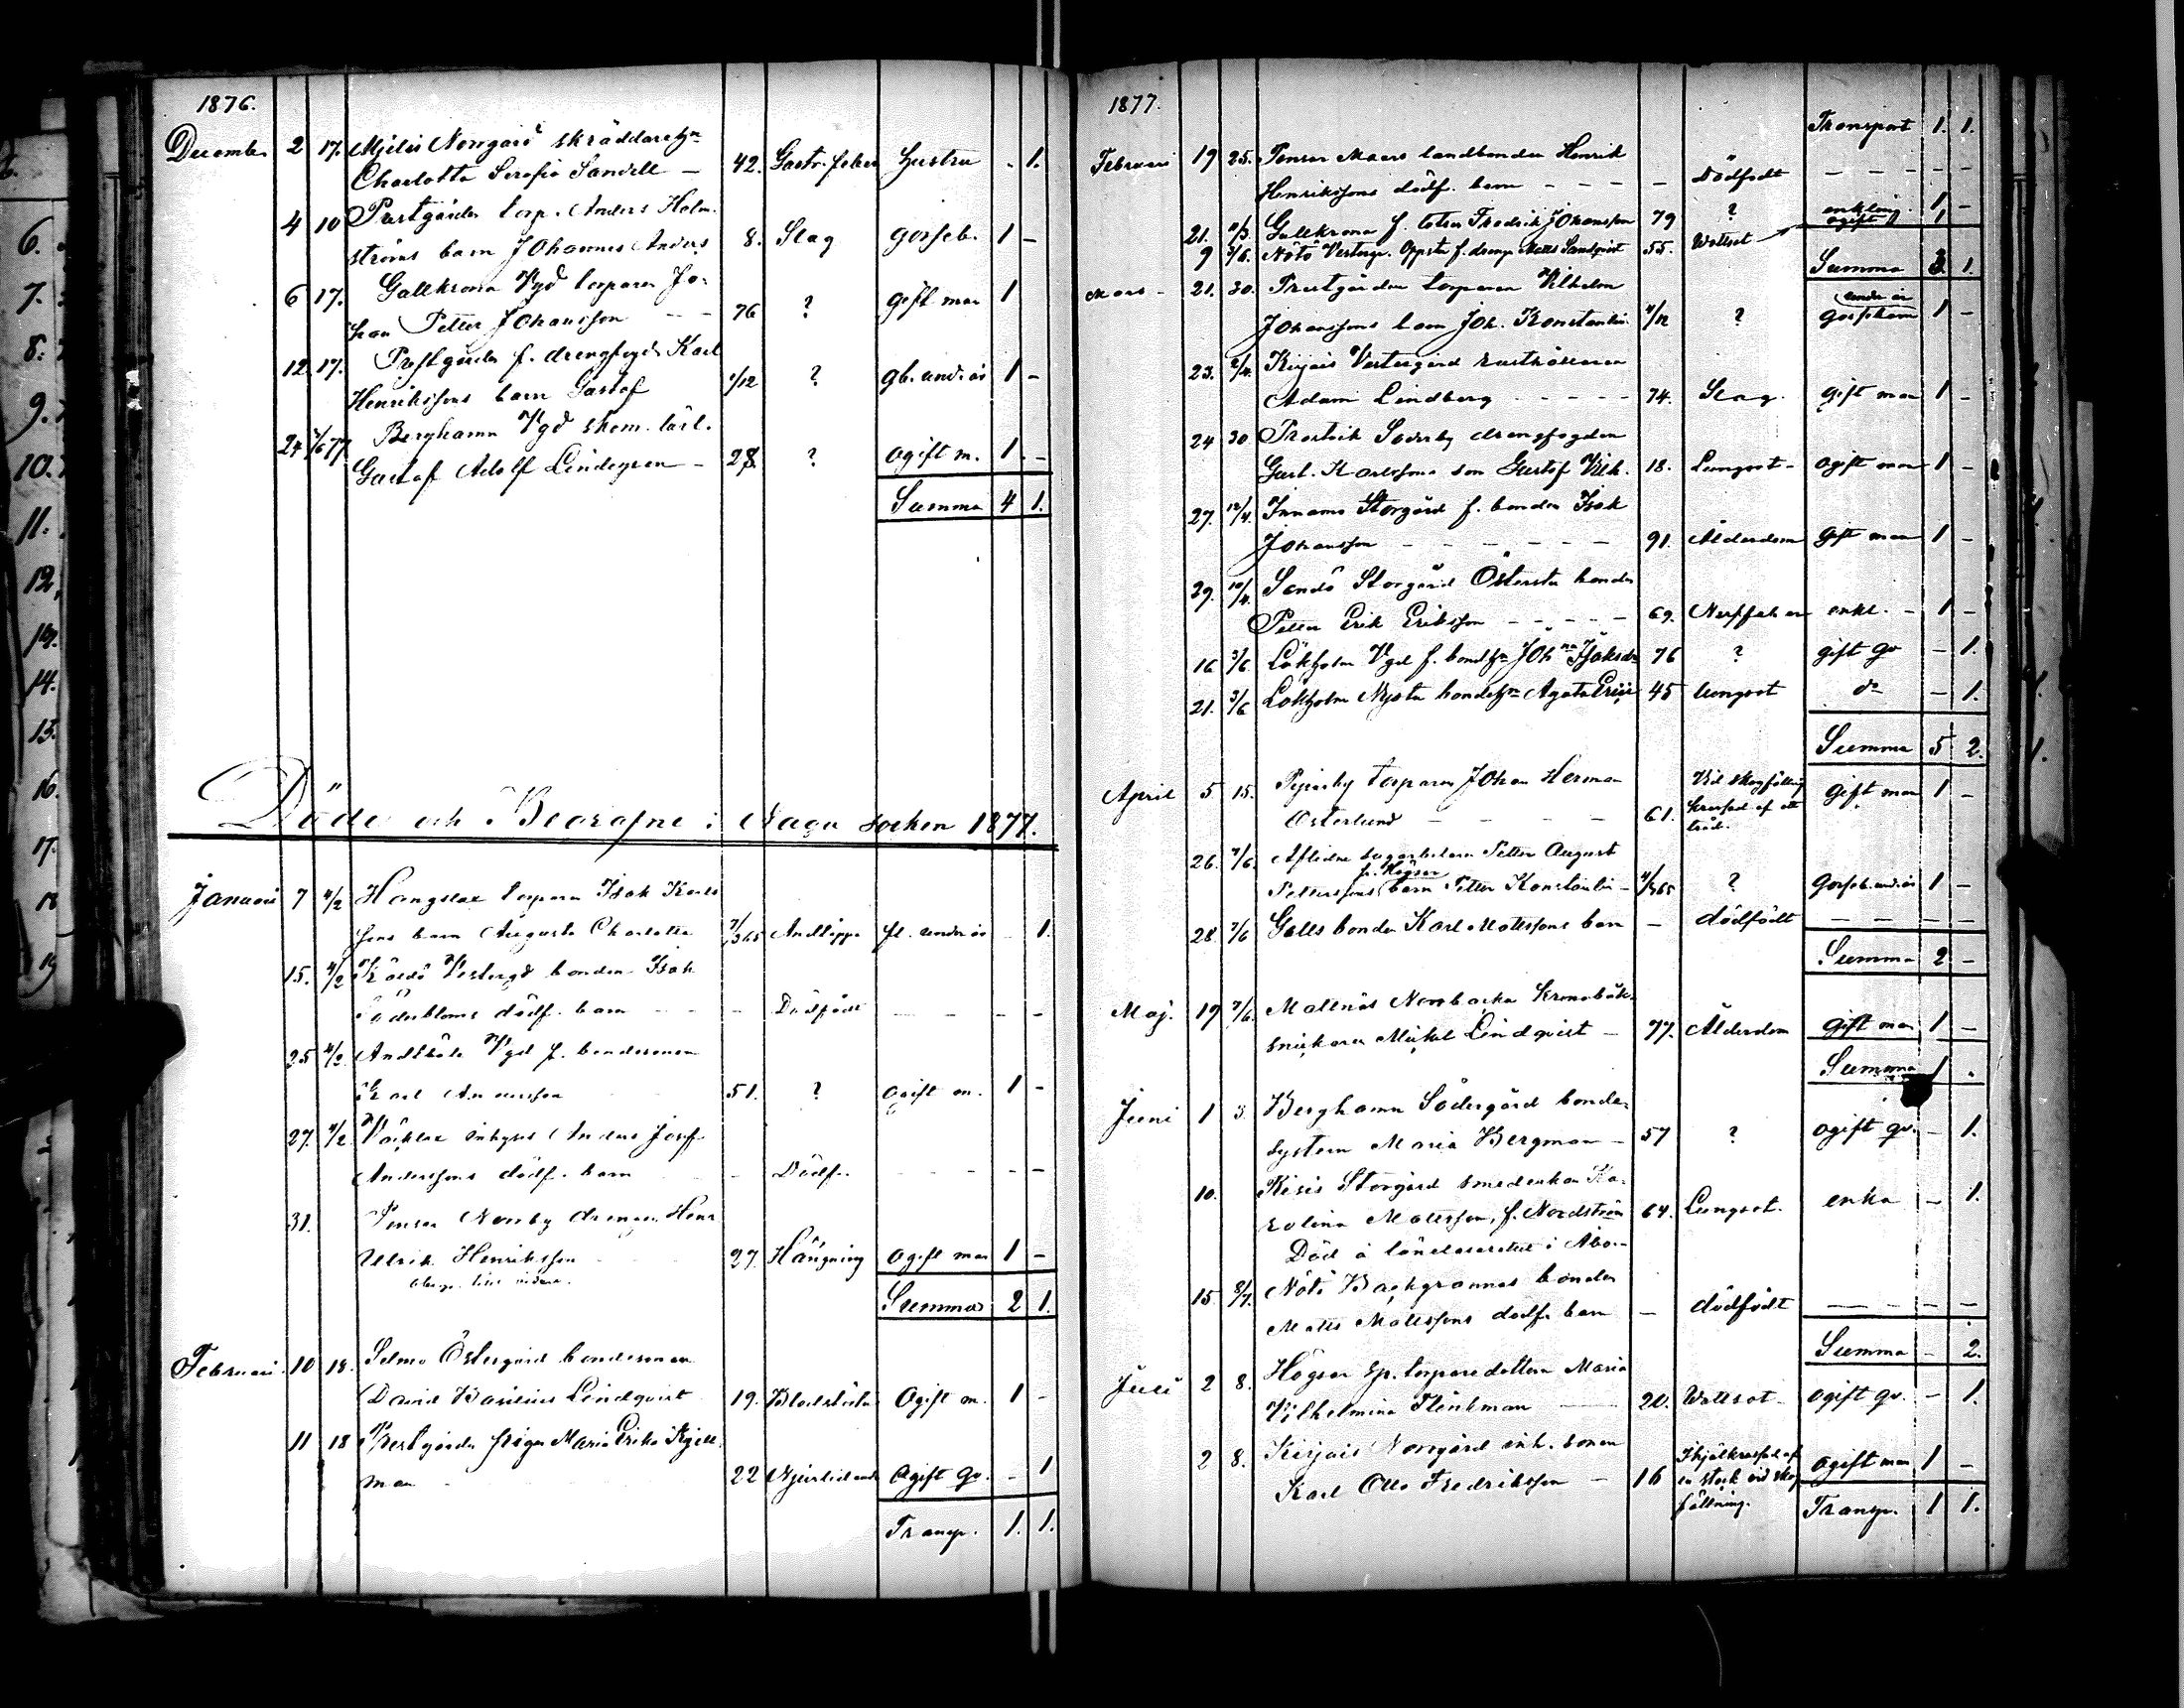 1876.
December 2 17. Mielis Norrgård skräddarehn
Charlotta Serafia Sandell — 42. Gastr. feber hustru - 1.
4 10 Prestgården torp. Anders Holm-
ströms barn Johannes Anders 8. Slag gosseb. 1 -
6 17. Gullkrona Vgd torparen Jo-
han Petter Johansson - - 76 ? gift man 1
12. 17. Prestgården f. drengfogd. Karl
Henrikssons barn Gustaf 1/12 ? gb. und. år 1 -
24 77 Berghamn Vgd skom. lärl.
Gustaf Adolf Lindegren - 28. ? ogift m. 1. -
Summa 4 1.
Döde och Begrafne i Nagu socken 1877.
Januari 7 4/2 Hangslax torparen Isak Karls
sons barn Augusta Charlotta 7/365 Andtäppa fl. under år 1.
15. 4/2 Vestergd bonden Isak
Söderbloms dödf. barn - - - Dödfödt - - - -
25 4/2 Vgd f. bondesonen
Karl 51. ? ogift m. 1 -
27. 4/2 inhyses Anders Josef
Anderssons dödf. barn - Dödf. - - - - -
31. Pensar Norrby drengen Henr
Ulrik Henriksson 27. Hängning ogift man 1 -
Summa 2 1.
Februari. 10 18. Selmo Östergård bondesonen
David Basilius Lindqvist 19. ogift m. 1 -
11 18 Prestgården pigan Maria Erika Kjell-
man 22 Njurlidande ogift qv. - 1
Transp. 1. 1.
1877.
Transport 1. 1.
Februari 19 25. Pensar Maers landbonden Henrik
Henrikssons dödf. barn - - - - Dödfödt - - - - -
21. Gullkrona f. lotsen Fredrik Johansson 79 ? enkling 1 -
9 3/6. Nötö Vestergd. Oppsta f. dreng Matts Sandqvist 55. Wattsot ogift 1
Summa 3. 1.
Mars - 21. 30. Prestgården torparen Vilhelm
Johanssons barn Joh. Konstantin 4/12 ? under år gossebarn 1 -
23. 2/4. Kirjais Vestergård rusthållaren
Adam Lindberg - - - - - 74. Slag. gift man 1 -
24 30. Prostvik Söderby drengfogden
Gust. Karlssons son Gustaf Vilh. 18. Lungsot - ogift man 1 -
27. 12/4. Innamo Storgård f. bonden Isak
Johansson - - - - - - - 91. Ålderdom gift man 1 -
29. 10/4. Sandö Storgård Östersta bonden
Petter Erik Eriksson - - - - - 69. Nerffeber enkl. - 1 -
16 3/6. Lökholm Vgd f. bondehn Johna Isaksdr 76 ? gift qv - 1.
21. 3/6 Lökholm Nysta bondehn Agata 45 lungsot do - 1.
Summa 5 2.
April 5 15. torparen Johan Herman Vid skogfällning
Österlund - - - - 61. krossad af ett träd. gift man 1 -
26. 7/6. Aflidne Petter August
fr. Högsar
Petterssons barn Petter Konstantin - 4/365 ? gosseb. und. år 1 -
28. 7/6 Gälls bonden Karl Mattssons barn - dödfödt - - - - -
Summa 2 -
Maj. 19 7/6. Mattnäs Norrbacka kronobåts-
snickaren Mickel Lindqvist - 77. Ålderdom gift man 1 -
Summa 1 -
Juni 1 3. Berghamn Södergård bonde-
system Maria Bergman - 57 ? ogift qv. - 1.
10. Kirjais Storgård smedenkan Ka-
rolina Mattsson, f. Nordström 64. Lungsot. enka - 1.
Död å länelasarettet i Åbo. -
15 8/7. Nötö Backgrannas bonden
Matts Mattssons dödf. barn - dödfödt - - - - -
Summa - 2.
Juli 2 8. Högsar torparedottern Maria
Vilhelmina Flinkman - 20. Wattsot - ogift qv. - 1.
2 8. Kirjais Norrgård inh. sonen
Karl Otto Fredriksson - 16 Ihjälkrossad af
en stock vid skog
fällning. ogift man 1 -
Transp. 1 1.